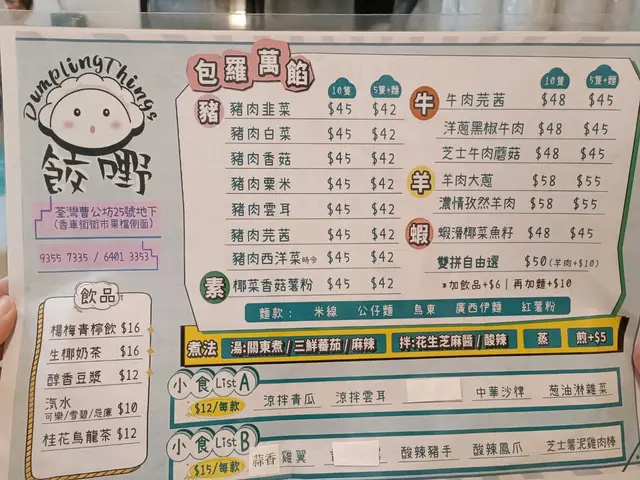 DumplingThings
餃嘢
荃灣曹公坊25號地下
(香車街街市果檔側面)
9355 7335 / 6401 3353
飲品
楊梅青檸飲 $16
生椰奶茶 $16
醇香豆漿 $12
汽水
可樂/雪碧/忌廉 $10
桂花烏龍茶 $12
包羅萬餡
10隻 5隻+麵
豬
豬肉韭菜 $45 $42
豬肉白菜 $45 $42
豬肉香菇 $45 $42
豬肉粟米 $45 $42
豬肉雲耳 $45 $42
豬肉芫茜 $45 $42
豬肉西洋菜時令 $45 $42
素 椰菜香菇薯粉 $45 $42
10隻 5隻+麵
牛 牛肉芫茜 $48 $45
洋蔥黑椒牛肉 $48 $45
芝士牛肉蘑菇 $48 $45
羊 羊肉大蔥 $58 $55
濃情孜然羊肉 $58 $55
蝦 蝦滑椰菜魚籽 $48 $45
雙拼自由選 $50(羊肉+$10)
*加飲品+$6 | 再加麵+$10
麵款： 米線 公仔麵 烏東 廣西伊麵 紅薯粉
煮法 湯:關東煮/三鮮蕃茄/麻辣 拌:花生芝麻醬/酸辣 蒸 煎+$5
小食List A
$12/每款 涼拌青瓜 涼拌雲耳 中華沙律 葱油淋雜菜
小食List B
$15/每款 蒜香雞翼 酸辣豬手 酸辣鳳爪 芝士薯泥雞肉棒